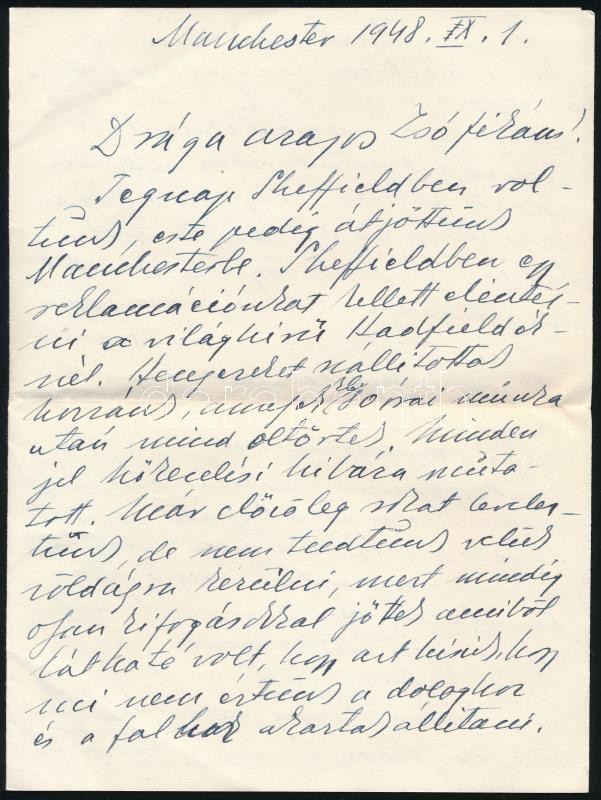 Manchester 1948. IX. 1.
Drága aranyos Zsófikám!
Tegnap Sheffieldben vol-
tünk, este pedig átjöttünk
Manchesterbe. Sheffieldben egy
reklamációnkat kellett elintéz-
ni a világhírű Hadfieldék-
nél. Hengereket szállítottak
hozzánk, amelyek kb. órai munka
után mind eltörtek. Minden
jel hőkezelési hibára muta-
tott. Már előzőleg sokat levelez-
tünk, de nem tudtunk velük
zöldágra kerülni, mert mindig
olyan kifogásokkal jöttek amiből
látható volt, hogy azt hiszik, hogy
mi nem értünk a dologhoz
és a falhoz akartak állítani.